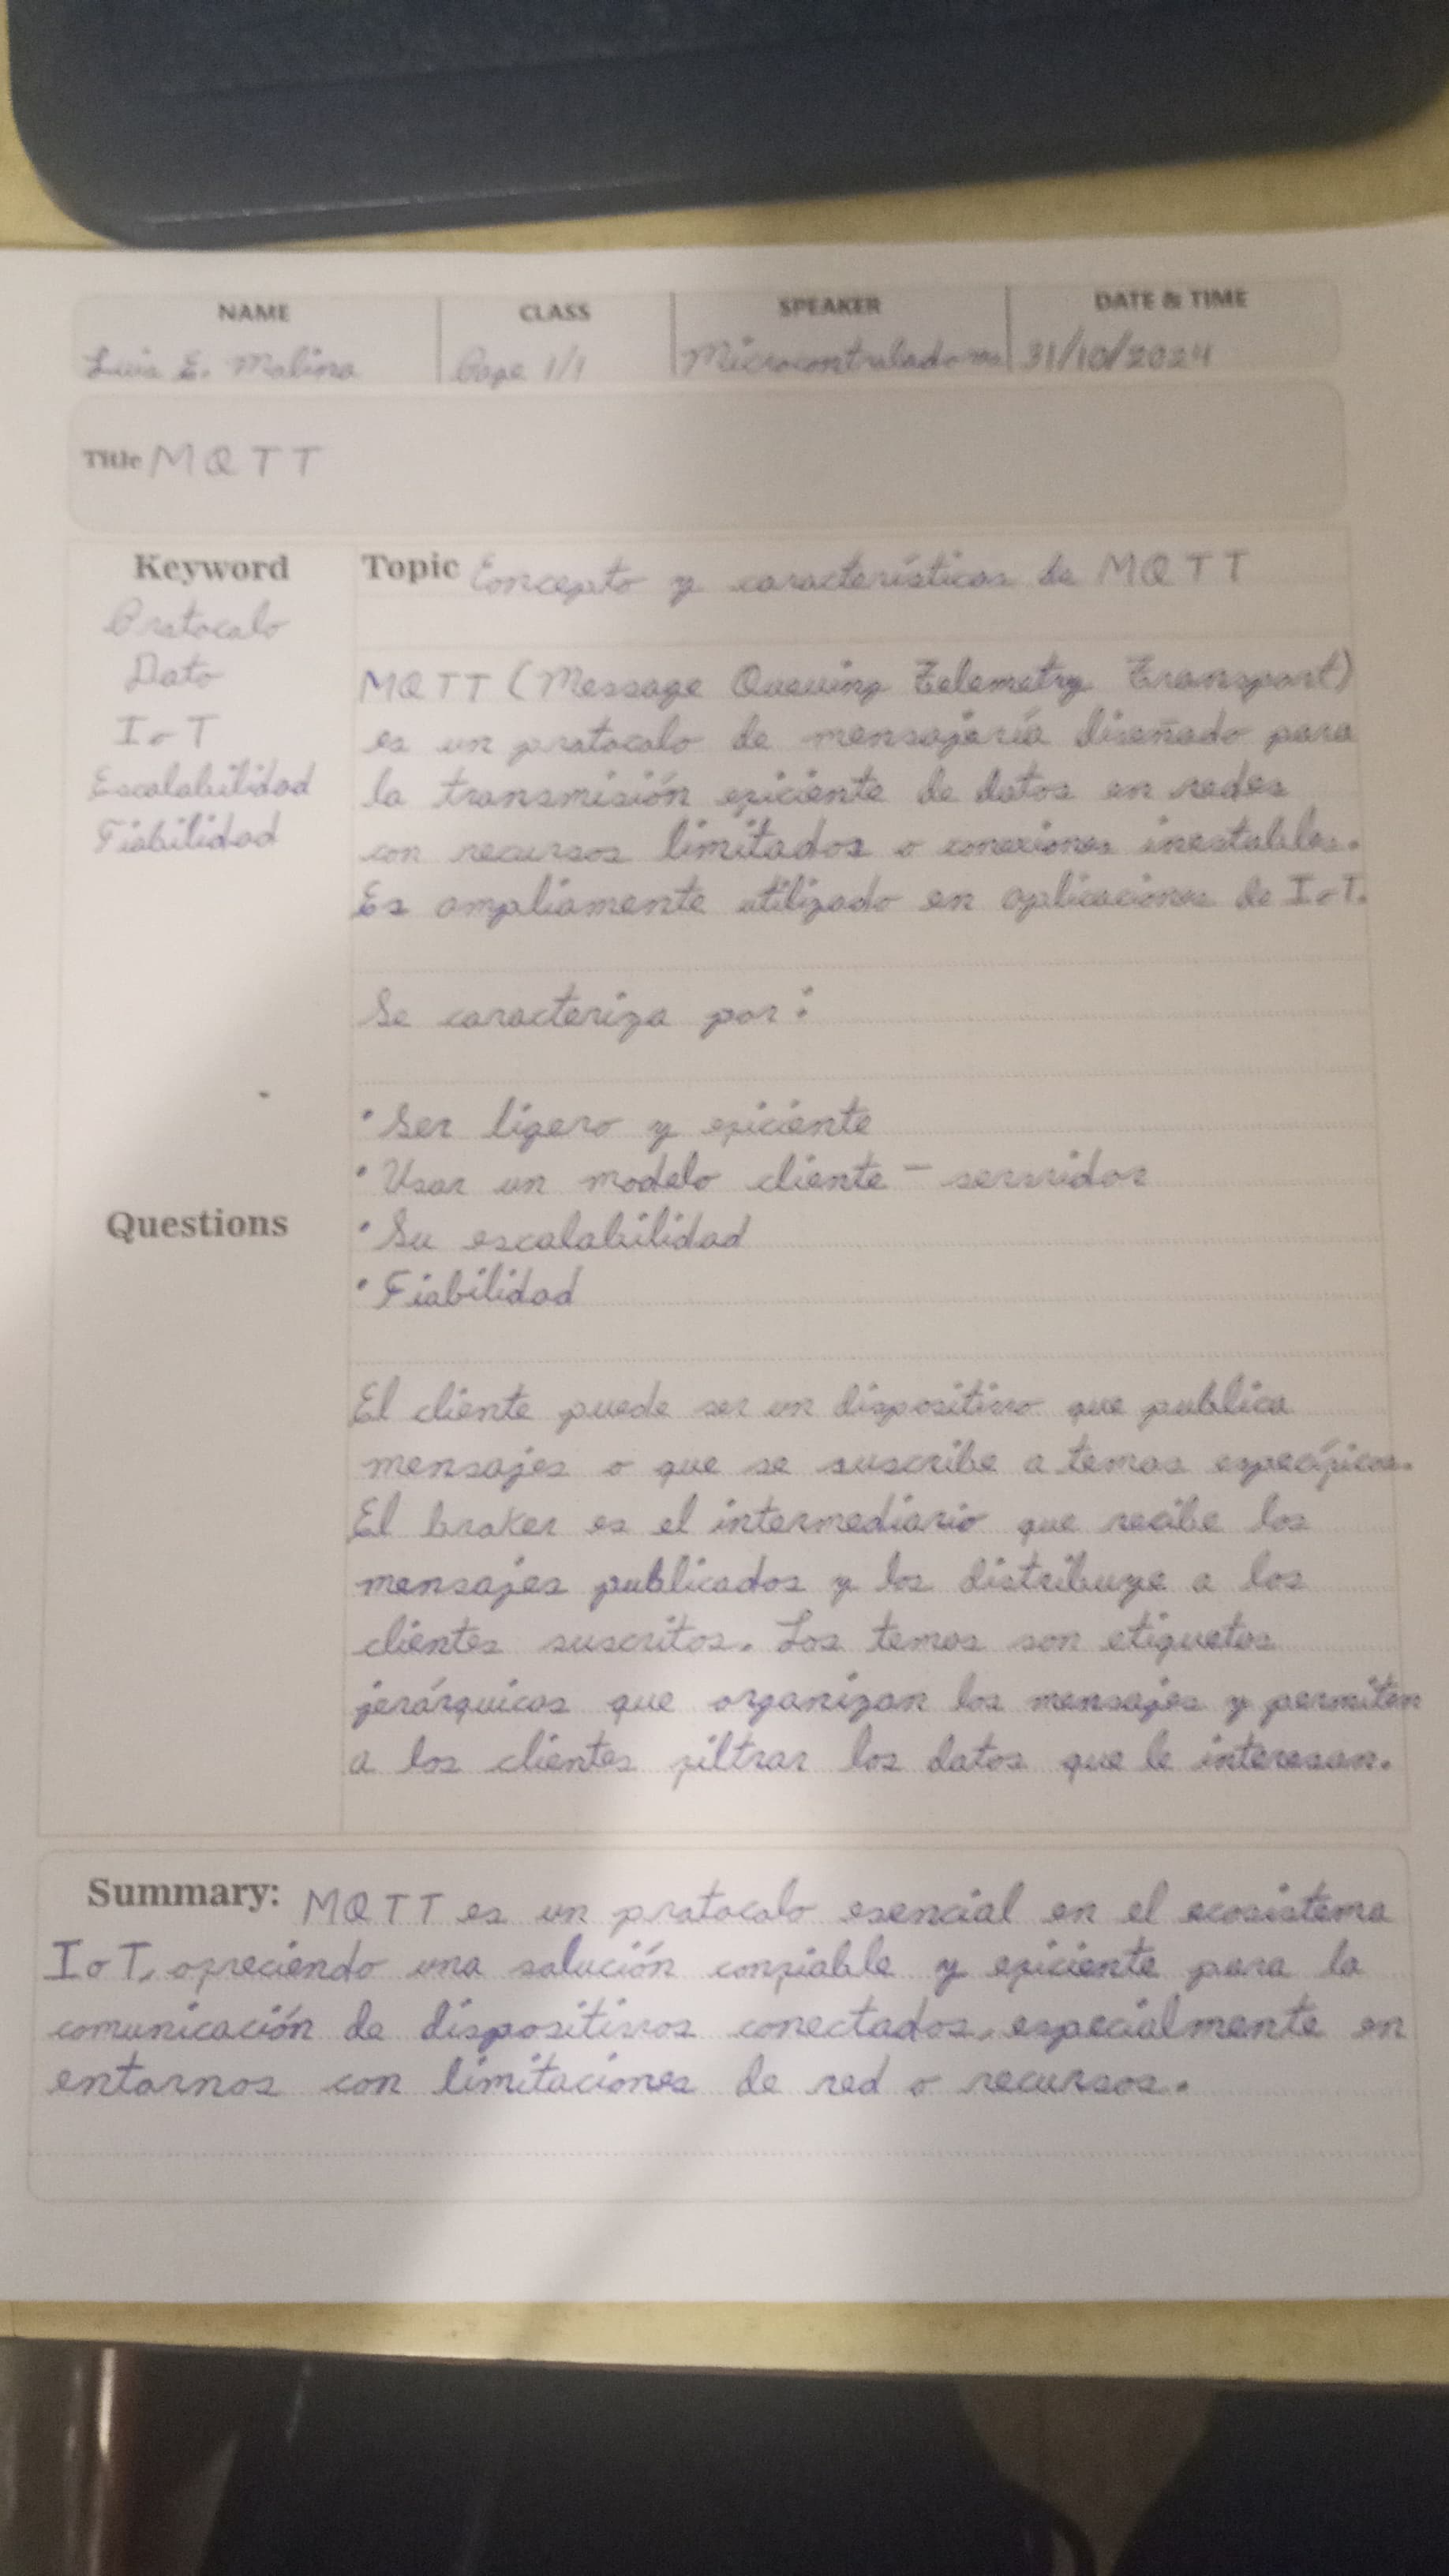 NAME CLASS SPEAKER DATE & TIME
Luis E. Molina Page 1/1 Microcontroladores 31/10/2024
Title MQTT
Keyword
Protocolo
Dato
IoT
Escalabilidad
Fiabilidad
Questions
Topic Concepto y características de MQTT
MQTT (Message Queuing Telemetry Transport)
es un protocolo de mensajería diseñado para
la transmisión eficiente de datos en redes
con recursos limitados o conexiones inestables.
Es ampliamente utilizado en aplicaciones de IoT.
Se caracteriza por:
• Ser ligero y eficiente
• Usar un modelo cliente - servidor
• Su escalabilidad
• Fiabilidad
El cliente puede ser un dispositivo que publica
mensajes o que se suscribe a temas específicos.
El broker es el intermediario que recibe los
mensajes publicados y los distribuye a los
clientes suscritos. Los temas son etiquetas
jerárquicas que organizan los mensajes y permiten
a los clientes filtrar los datos que le interesan.
Summary: MQTT es un protocolo esencial en el ecosistema
IoT, ofreciendo una solución confiable y eficiente para la
comunicación de dispositivos conectados, especialmente en
entornos con limitaciones de red o recursos.